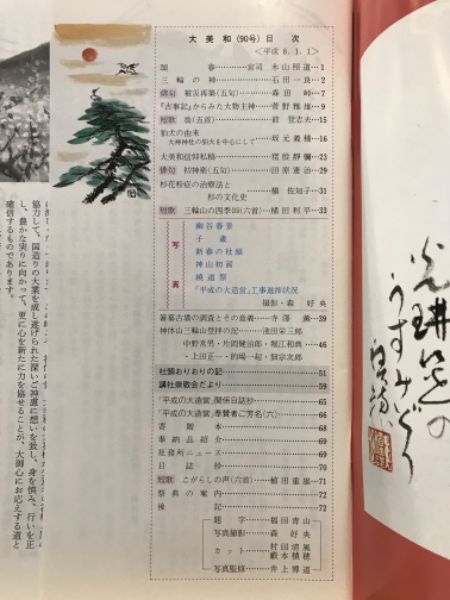 大美和(90号)目次
<平成 8. 1. 1>
頌春…………宮司 木山照道…1
三輪の神……………石田一良…2
俳句 被災再築(五句)………森田峠…7
『古事記』からみた大物主神…菅野雅雄…9
短歌 翁(五首)……………前登志夫…15
狛犬の由来
大神神社の狛犬を中心にして…坂元義種…16
大美和信仰私稿…………23
俳句 初神楽(五句)………田原憲治…29
杉花粉症の治療法と
杉の文化史…………橘佐知子…31
短歌 三輪山の四季(六首)…植田利平…33
写真
幽谷春景
子歳
新春の社頭
神山初茜
繞道祭
「平成の大造営」工事進捗状況
撮影・森好央
箸墓古墳の調査とその意義……寺澤薫…39
神体山三輪山登拝の記………淺田栄三郎
・中野常男・片岡健治郎・堀江和典…46
・上田正一・的場一起・佃宗次郎
社頭おりおりの記…………51
講社崇敬会だより…………59
「平成の大造営」関係日誌抄…………65
「平成の大造営」奉賛者ご芳名(六)…………66
寄贈本…………68
奉納品紹介…………69
社務所ニュース…………69
日誌抄…………70
短歌 こがらしの声(六首)…植田重雄…71
祭典の案内…………72
後記…………72
題字……福田青山
写真撮影……森好央
カット……村田清風
藪本積穂
写真監修……井上博道
協力して、国造りの大業を成し遂げられた深いご神慮に想いを致し、身を慎み、行いを正
し、豊かな実りに向かって、更に心を新たに力を協せることが、大御心にお応えする道と
確信するものであります。
うすみどり